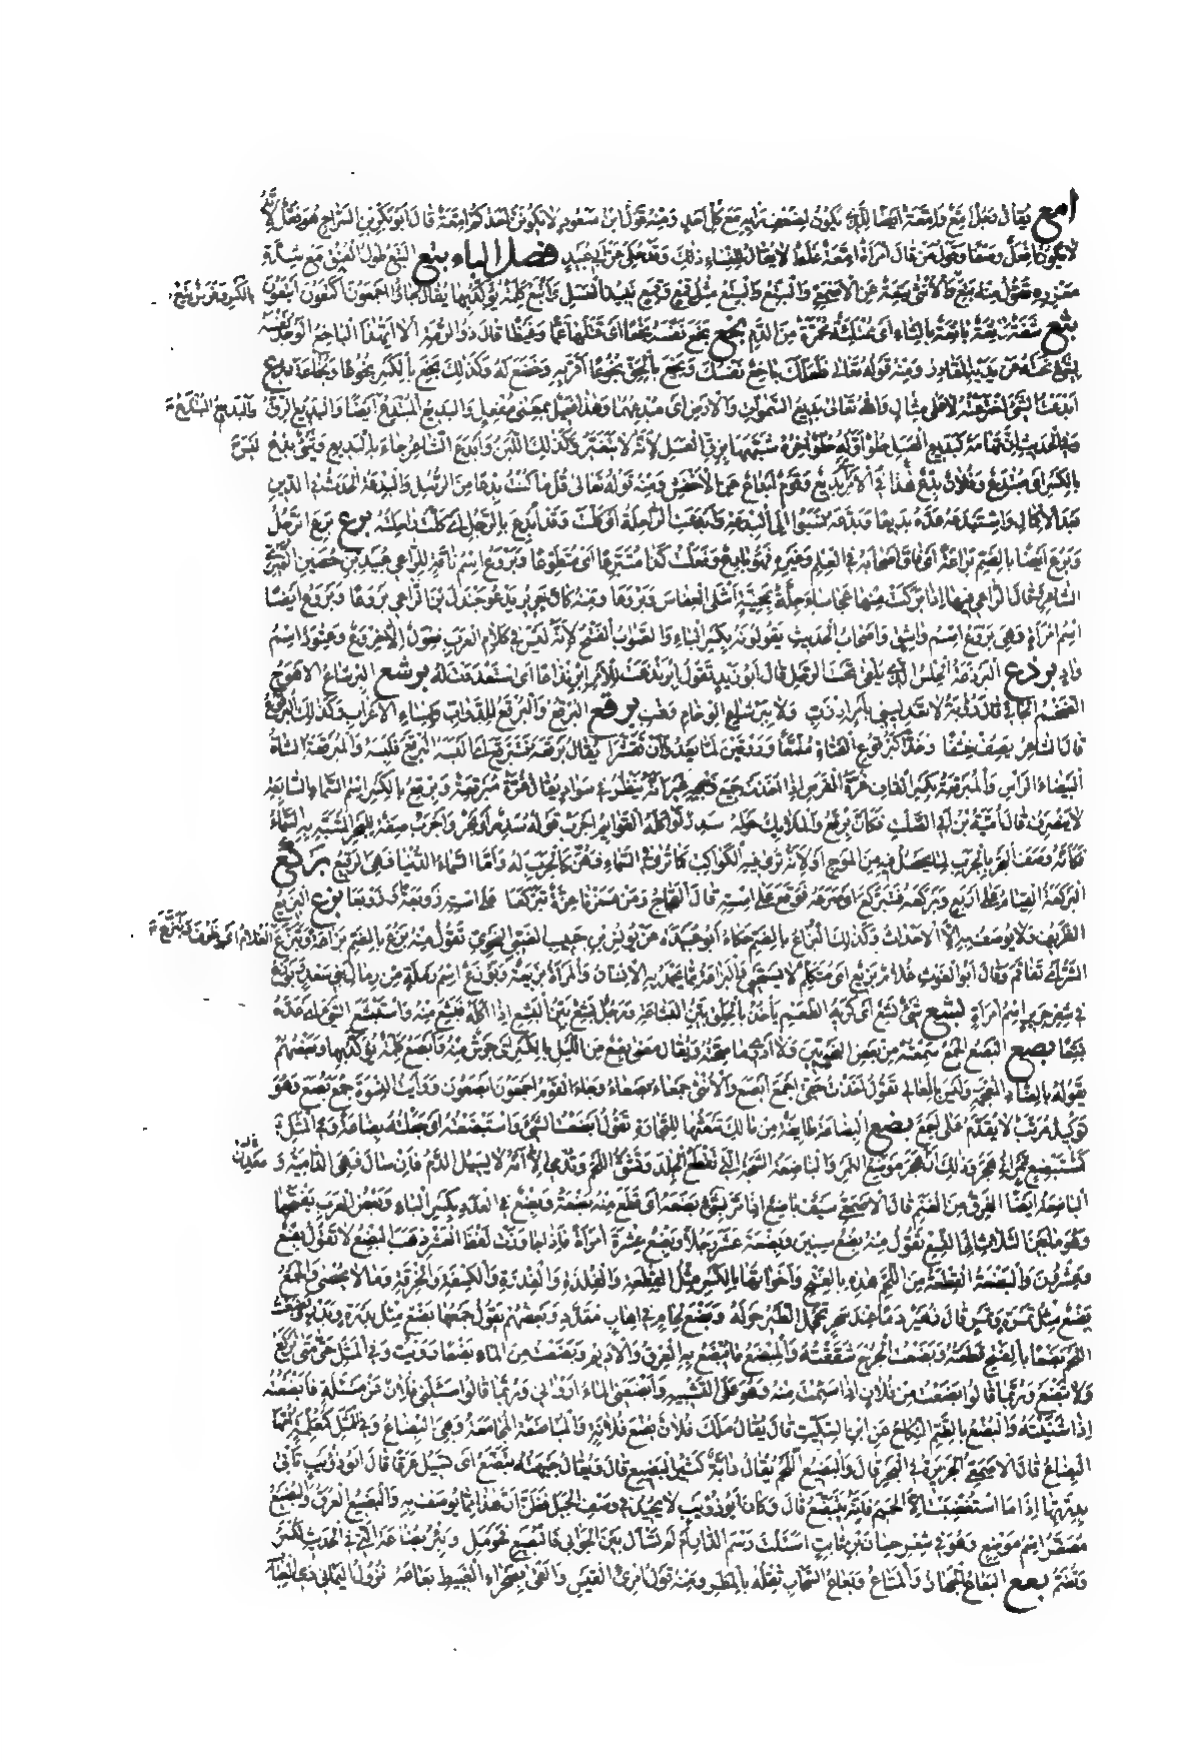 امع يقال رجل امع وامعة ايضا للذي يكون لضعف رايه مع كل احد ومنه قول ابن مسعود لا يكونن احدكم امعة قال ابو بكر بن السراج هو فعل لانه
لا يكون افعل وصفا وقول من قال امراة امعة غلط لا يقال للنساء ذلك وقد حكي عن ابي عبيد فصل الباء بتع البتع طول العنق مع شدة
مغرزه تقول منه بتع والانثى بتعة عن الاصمعي والبتع والبتع مثل قمع وقمع نبيذ العسل وابتع كلمة يؤكد بها يقال جاؤا اجمعون اكتعون ابتعون
بالكسر فرس بتع
بثع شفة باثعة بالثاء اى ممتلئة محمرة من الدم بخع بخع نفسه بخعا اى قتلها غما وغيظا قال ذو الرمة الا ايهذا الباخع الوجد نفسه
بشئ نحته عن يديه المقادر ومنه قوله تعالى فلعلك باخع نفسك وبخع بالحق بخوعا اقر به وخضع له وكذلك بخع بالكسر بخوعا وبخاعة بدع
ابدعت الشئ اخترعته لا على مثال والله تعالى بديع السموات والارض اى مبدعهما وهذا فعيل بمعنى مفعل والبديع المبتدع ايضا والبديع الزق
والبديع المبتدع
وفي الحديث ان تهامة كبديع العسل حلو اوله حلو اخره شبهها بزق العسل لانه لا يتغير وكذلك اللبن وابدع الشاعر جاء بالبديع وشئ بدع
بالكسر اى مبتدع وفلان بدع في هذا الامر اى بديع وقوم ابداع عن الاخفش ومنه قوله تعالى قل ما كنت بدعا من الرسل والبدعة الحدث في الدين
بعد الاكمال واستبدعه عده بديعا وبدعه نسبه الى البدعة وابدعت الراحلة اى كلت وقد ابدع بالرجل اى كلت راحلته برع برع الرجل
وبرع ايضا بالضم براعة اى فاق اصحابه في العلم وغيره فهو بارع وفعلت كذا متبرعا اى متطوعا وبروع اسم ناقة للراعي عبيد بن حصين النميري
الشاعر قال الراعي فيها اذا بركت منها عجاساء جلة بمحنية اشلى العفاس وبروعا ومنه كان جرير يدعو جندل بن الراعي بروعا وبروع ايضا
اسم امراة وهي بروع اسم واشق واصحاب الحديث يقولونه بكسر الباء والصواب الفتح لانه ليس في كلام العرب فعول الا خروع وعتود اسم
واد بردع البردعة الحلس الذي يلقى تحت الرحل قال ابو زيد تقول ابرنذعت للامر ابرنذاعا اى استعددت له برشع البرشاع الاهوج
الضخم الجافي قال رؤبة لا تعدليني بامرئ ارزب ولا ببرشاع الوخام وغب برقع البرقع والبرقع للدواب ونساء الاعراب وكذلك البرقوع
قال الشاعر يصف خشفا وخد كبرقوع الفتاة ملمعا وروقين لما يعدوا ان تقشرا يقال برقعه فتبرقع اى البسه البرقع فلبسه والمبرقعة الشاة
البيضاء الراس والمبرقعة بكسر القاف غرة الفرس اذا اخذت جميع وجهه غير انه ينظر في سواد يقال غرة مبرقعة وبرقع بالكسر اسم السماء السابعة
لا ينصرف قال امية بن ابي الصلت فكان برقع والملائك حوله سدر تواكله القوائم اجرب قوله سدر اى بحر واجرب صفة للبحر المشبه به السماء
فكانه وصف البحر بالجرب لما يحصل فيه من الموج او لانه ترى فيه الكواكب كما ترى في السماء فهن كالجرب له واما السماء الدنيا فهي الرقيع بركع
البركعة القيام على اربع وبركعه فتبركع اى صرعه فوقع على استه قال العجاج ومن همزنا عزه تبركعا على استه زوبعة او زوبعا بزع البزيع
الظريف ولا يوصف به الا الاحداث وكذلك البزاع بالضم حكاه ابو عبيدة عن يونس بن حبيب الضبي النحوي تقول منه بزع بالضم بزاعة وتبزع
الغلام اى ظرف وتبزع
الشر اى تفاقم وقال ابو الغوث غلام بزيع اى متكلم لا يستحي والبزاعة مما يحمد به الانسان والمراة بزيعة وبوزع اسم رملة من رمال بني سعد وبوزع
في شعر جرير اسم امراة بشع شئ بشع اى كريه الطعم ياخذ بالحلق بين البشاعة ورجل بشع بين البشع اذا اكله فبشع منه واستبشع الشئ اى عده
بشعا بصع البصع الجمع سمعته من بعض النحويين ولا ادري ما صحته ويقال مضى بصع من الليل بالكسر اى جوش منه وابصع كلمة يؤكد بها وبعضهم
يقوله بالضاد المعجمة وليس بالعالي تقول اخذت حقي اجمع ابصع والانثى جمعاء بصعاء وجاء القوم اجمعون ابصعون ورايت النسوة جمع بصع وهو
توكيد مرتب لا يقدم على اجمع بضع البضاعة طائفة من مالك تبعثها للتجارة تقول ابضعت الشئ واستبضعته اى جعلته بضاعة وفي المثل
كمستبضع تمر الى هجر وذلك ان هجر معدن التمر والباضعة الشجة التي تقطع الجلد وتشق اللحم وتدمى الا انه لا يسيل الدم فان سال فهي الدامية و
الباضعة ايضا الفرق من الغنم قال الاصمعي سيف باضع اذا مر بشئ بضعه اى قطع منه بضعة وبضع في العدد بكسر الباء وبعض العرب يفتحها
وهو ما بين الثلاث الى التسع تقول منه بضع سنين وبضعة عشر رجلا وبضع عشرة امراة فاذا جاوزت لفظ العشر ذهب البضع لا تقول بضع
وعشرون والبضعة القطعة من اللحم هذه بالفتح واخواتها بالكسر مثل القطعة والفلذة والفدرة والكسفة والخرقة وما لا يحصى والجمع
بضع مثل تمرة وتمر قال زهير دما عند شلو تحجل الطير حوله وبضع لحام في اهاب مقدد وبعضهم يقول جمعها بضع مثل بدرة وبدر وبضعت
اللحم بضعا بالفتح قطعته وبضعت الجرح شققته والمبضع ما يبضع به العرق والاديم وبضعت من الماء بضعا رويت وفي المثل حتى متى تكرع
ولا تبضع وربما قالوا بضعت من فلان اذا سئمت منه وهو على التشبيه وابضعني الماء اروانى وربما قالوا سالني فلان عن مسئلة فابضعته
اذا شفيته والبضع بالضم النكاح عن ابن السكيت قال يقال ملك فلان بضع فلانة والمباضعة المجامعة وهي البضاع وفي المثل كمعلمة امها
البضاع قال الاصمعي البضيع الجزيرة في البحر قال والبضيع اللحم يقال دابة كثير البضيع قال ويقال جبهته تبضع اى تسيل عرقا قال ابو ذؤيب تابى
بدرتها اذا ما استغضبت الا الحميم فانه يتبضع قال وكان ابو ذؤيب لا يجيد في وصف الخيل فظن ان هذا مما يوصف به والبضيع العرق والبضيع
مصغر اسم موضع وهو في شعر حسان بن ثابت اسالت رسم الدار ام لم تسال بين الجوابي فالبضيع فحومل وبئر بضاعة التي في الحديث تكسر
وتضم بعع البعاع الجهاز والمتاع وبعاع السحاب ثقله بالمطر ومنه قول امرئ القيس والقى بصحراء الغبيط بعاعه نزول اليماني ذي العياب